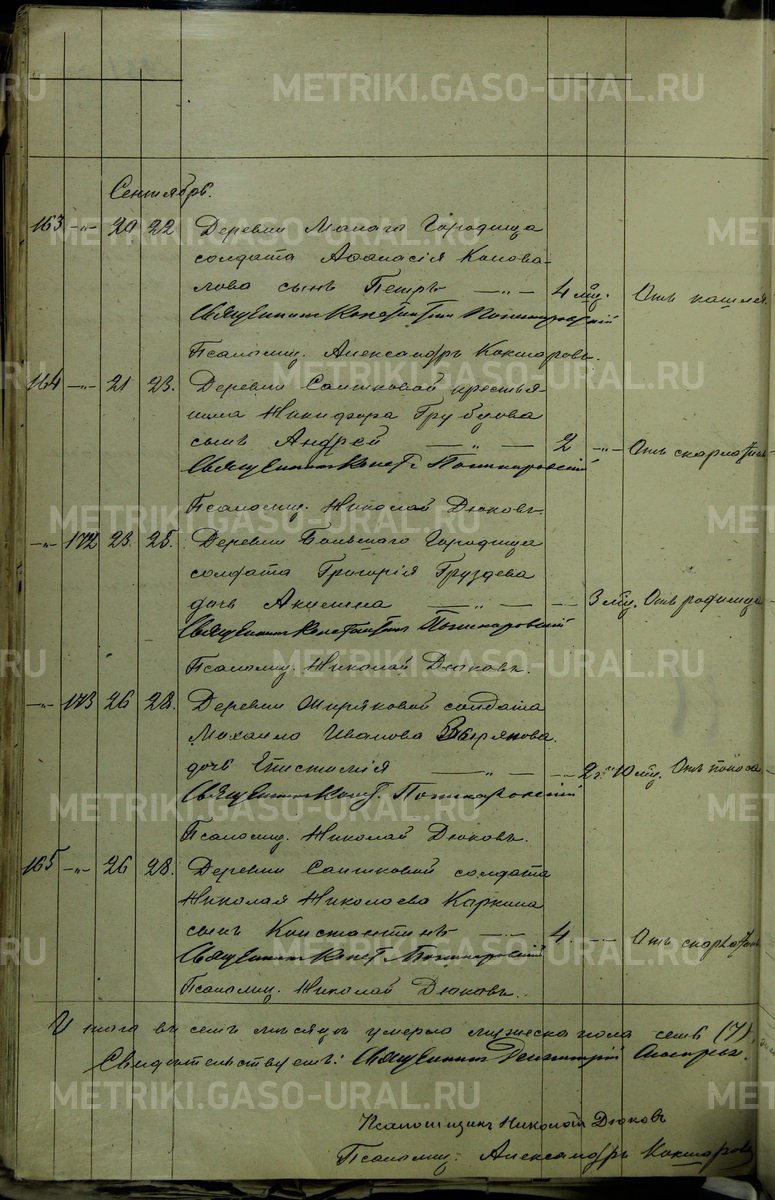 Сентябрь.
163 -"- 20 22 Деревни Малаго Городища
солдата Аѳанасія Конова-
лова сынъ Петръ -"- 4 мц. Отъ кашля.
Священникъ Константинъ
Псаломщ. Александръ Кокшаровъ.
164 -"- 21 23. Деревни Сашковой крестья-
нина Никифора
сынъ Андрей -"- 2 -"- Отъ скарлатины
Священникъ Конст.
Псаломщ. Николай Дюковъ.
-"- 172 23. 25. Деревни Большаго Городища
солдата Григорія Груздева
дочь Акилина -"- 3 мц. Отъ родимца
Священникъ Константинъ
Псаломщ. Николай Дюковъ.
-"- 173 26 28. Деревни солдата
Михаила Иванова
дочь -"- 2 г. 10 мц. Отъ поноса
Священникъ Конст.
Псаломщ. Николай Дюковъ.
165 -"- 26 28. Деревни Сашковой солдата
Николая Николаева Каркина
сынъ Константинъ -"- 4. -"- Отъ скарлатины
Священникъ Конст.
Псаломщ. Николай Дюковъ.
Итого въ семъ месяце умерло мужеска пола семь (7),
Свидетельствуемъ: Священникъ Димитрій
Псаломщикъ Николай Дюковъ
Псаломщ. Александръ Кокшаровъ
METRIKI.GASO-URAL.RU